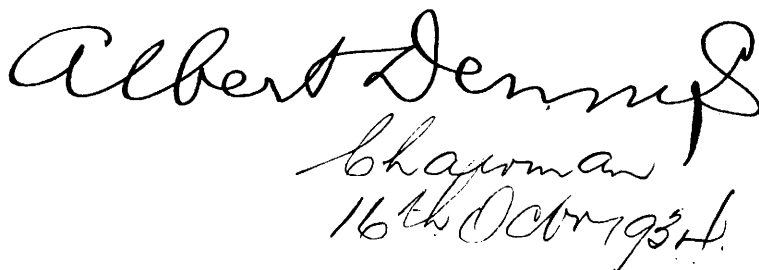 Albert Dennis
Chairman
16th Octbr 1934.